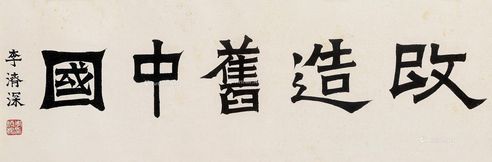 改造舊中國
李濟深